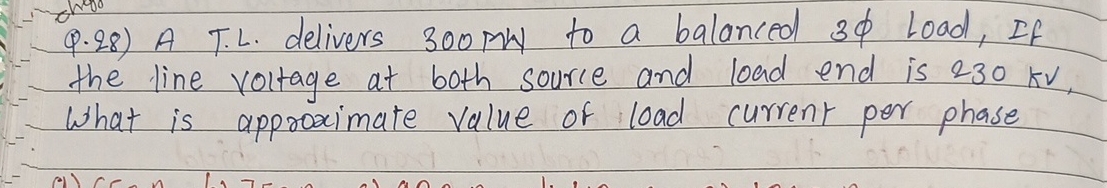 Q.28) A T.L. delivers 300 MW to a balanced 3ϕ Load, If
the line voltage at both source and load end is 230 kV,
What is approximate value of load current per phase